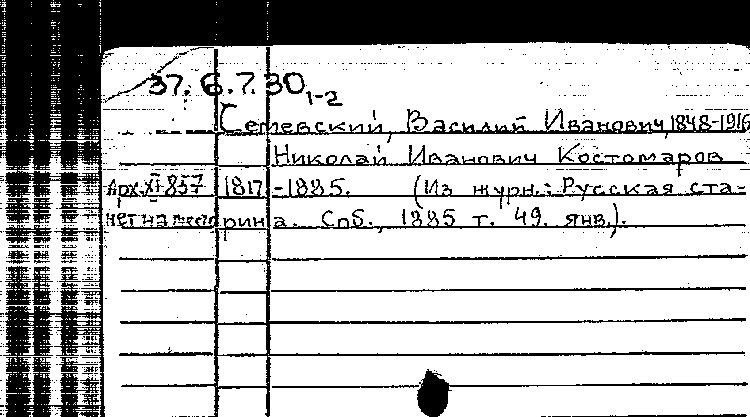 37.6.7.30 1-2
Семевский, Василий Иванович, 1848-1916
Николай Иванович Костомаров
Арх. XI 857 1817-1885. (Из журн.: Русская ста-
рина. Спб., 1885 т. 49. янв.).
нет на